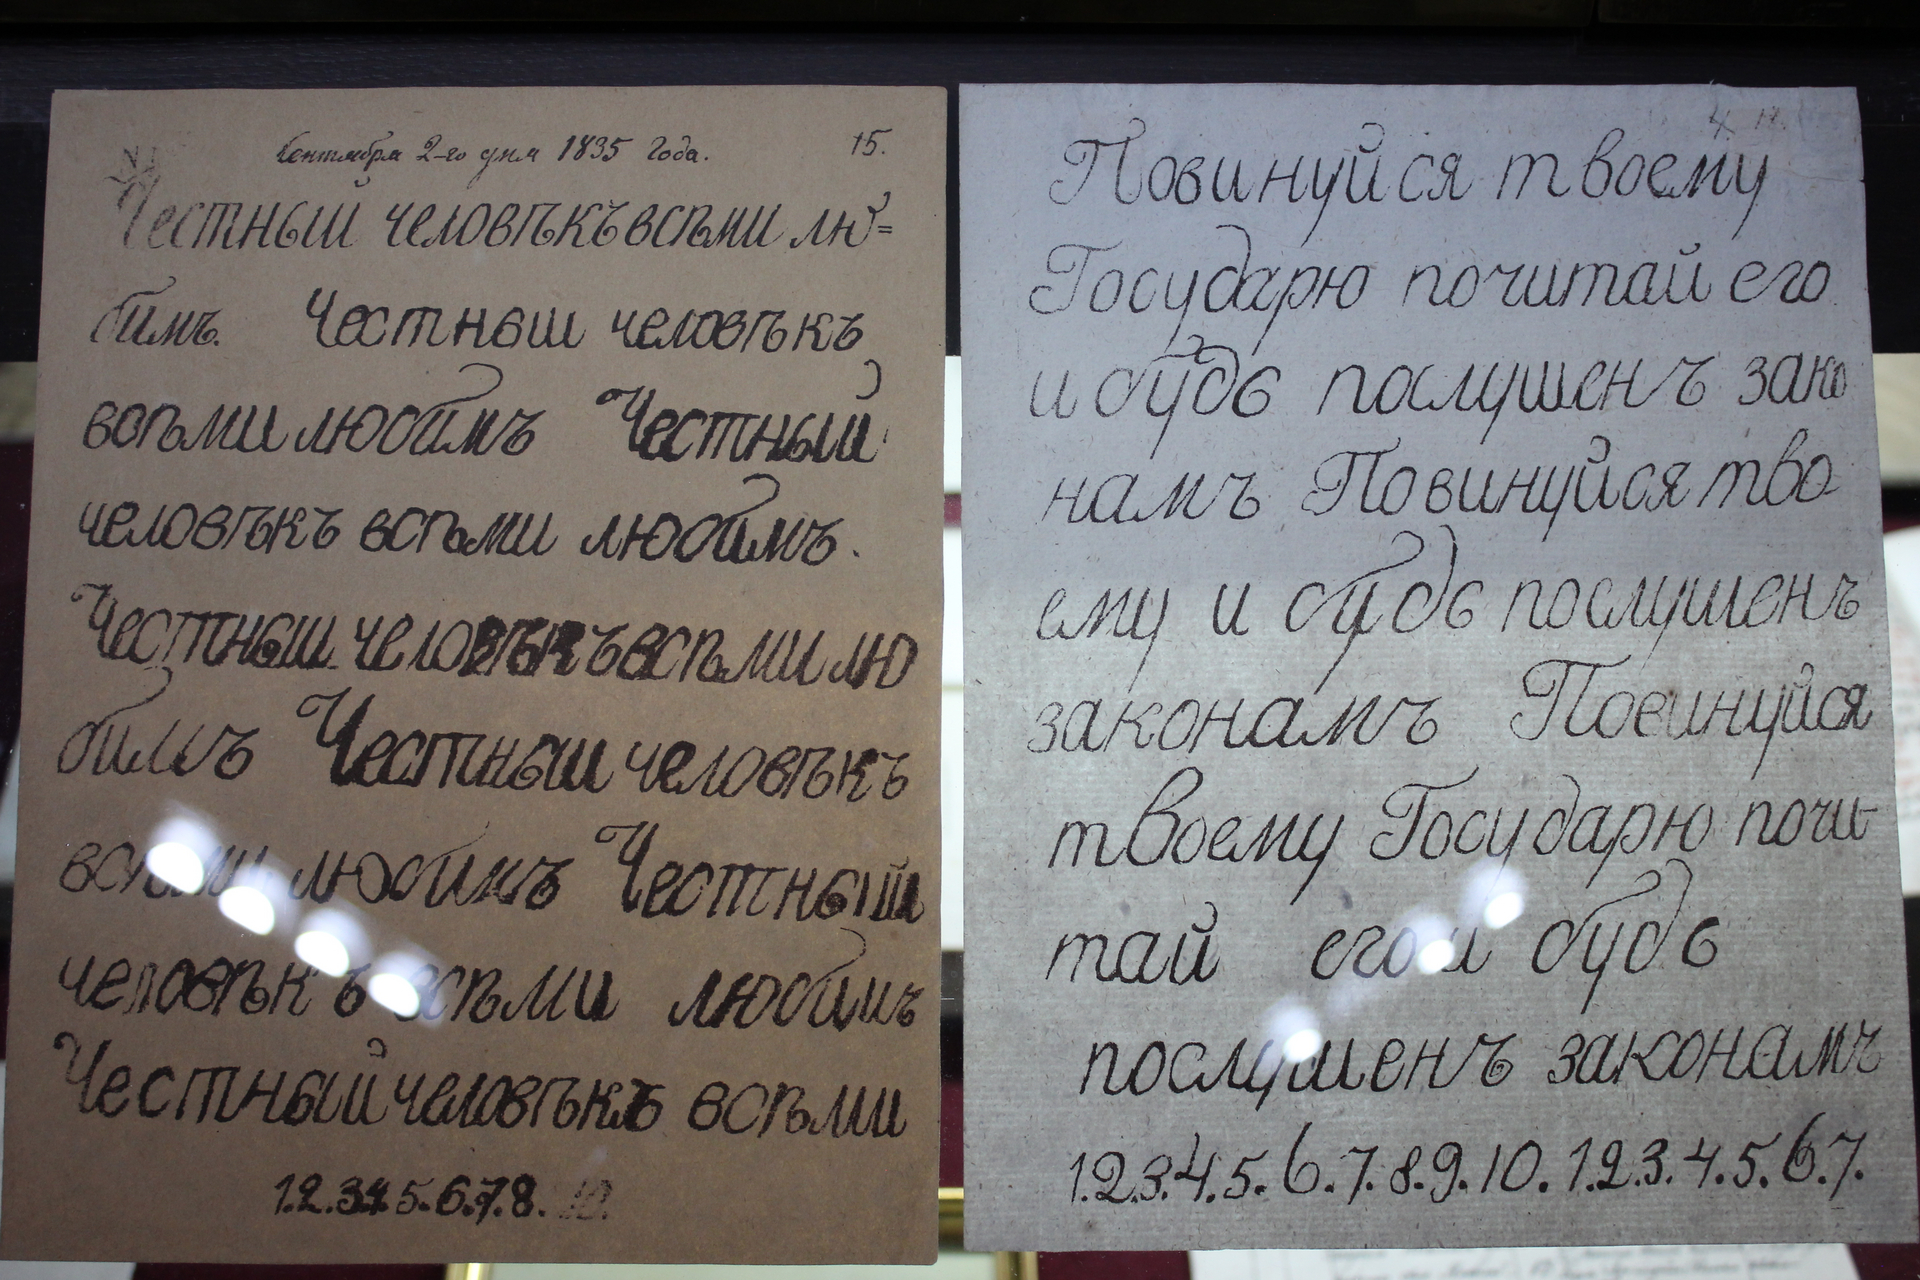 Сентября 2-го дня 1835 Года. 15.
Честный человѣкъ всѣми лю=
бимъ. Честный человѣкъ
всѣми любимъ Честный
человѣкъ всѣми любимъ.
Честный человѣкъ всѣми лю
бимъ Честный человѣкъ
всѣми любимъ Честный
человѣкъ всѣми любимъ
Честный человѣкъ всѣми
1.2.3.4 5.6.7.8. 10.
Повинуйся твоему
Государю почитай его
и будь послушенъ зако
намъ Повинуйся тво
ему и будь послушенъ
законамъ Повинуйся
твоему Государю почи
тай его и будь
послушенъ законамъ
1.2.3.4.5.6.7.8.9.10.1.2.3.4.5.6.7.